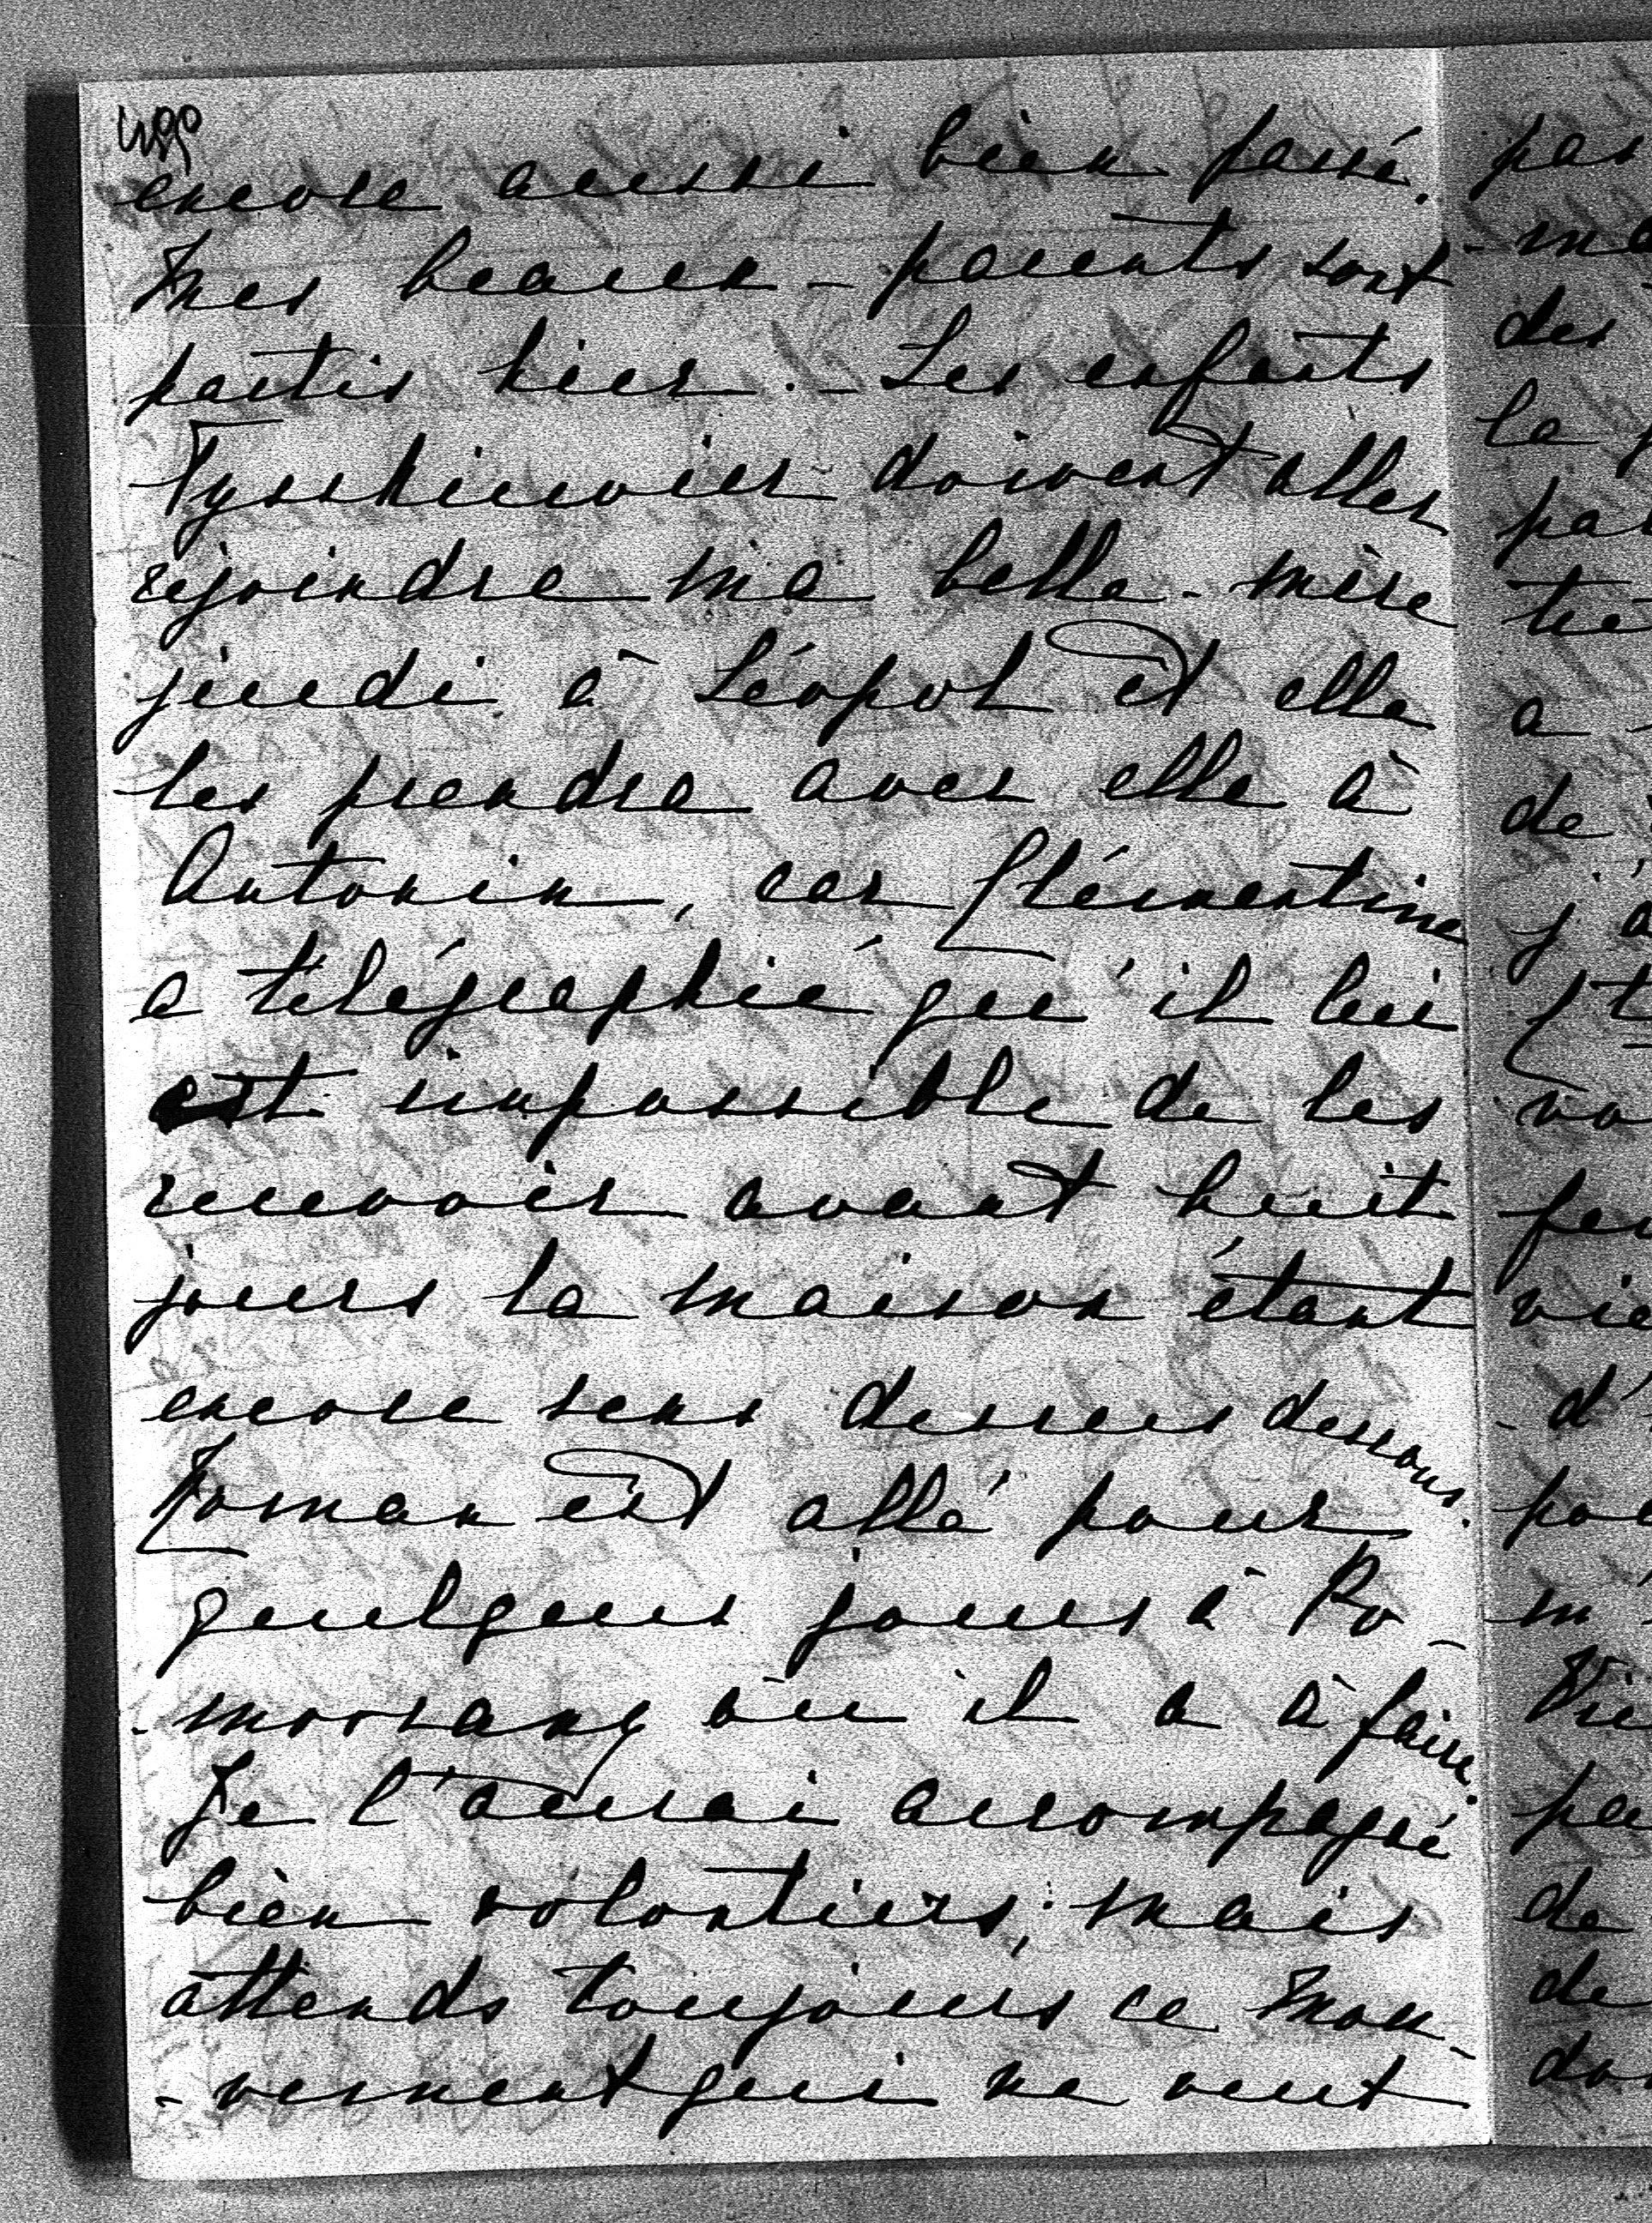 encore aussi bien passé.
Mes beaux-parents sont
partis hier. - Les enfants
Tyszkiewicz doivent aller
rejoindre ma belle-mère
jeudi à Léopol et elle
les prendra avec elle à
Antonin, car Clémentine
a télégraphié qu'il lui
est impossible de les
recevoir avant huit
jours la maison étant
encore sens dessus dessous.
Roman est allé pour
quelques jours à Ro-
-morsang où il a à faire.
Je l'aurai accompagné
bien volontiers, mais
attends toujours ce mou-
-vement qui ne veut